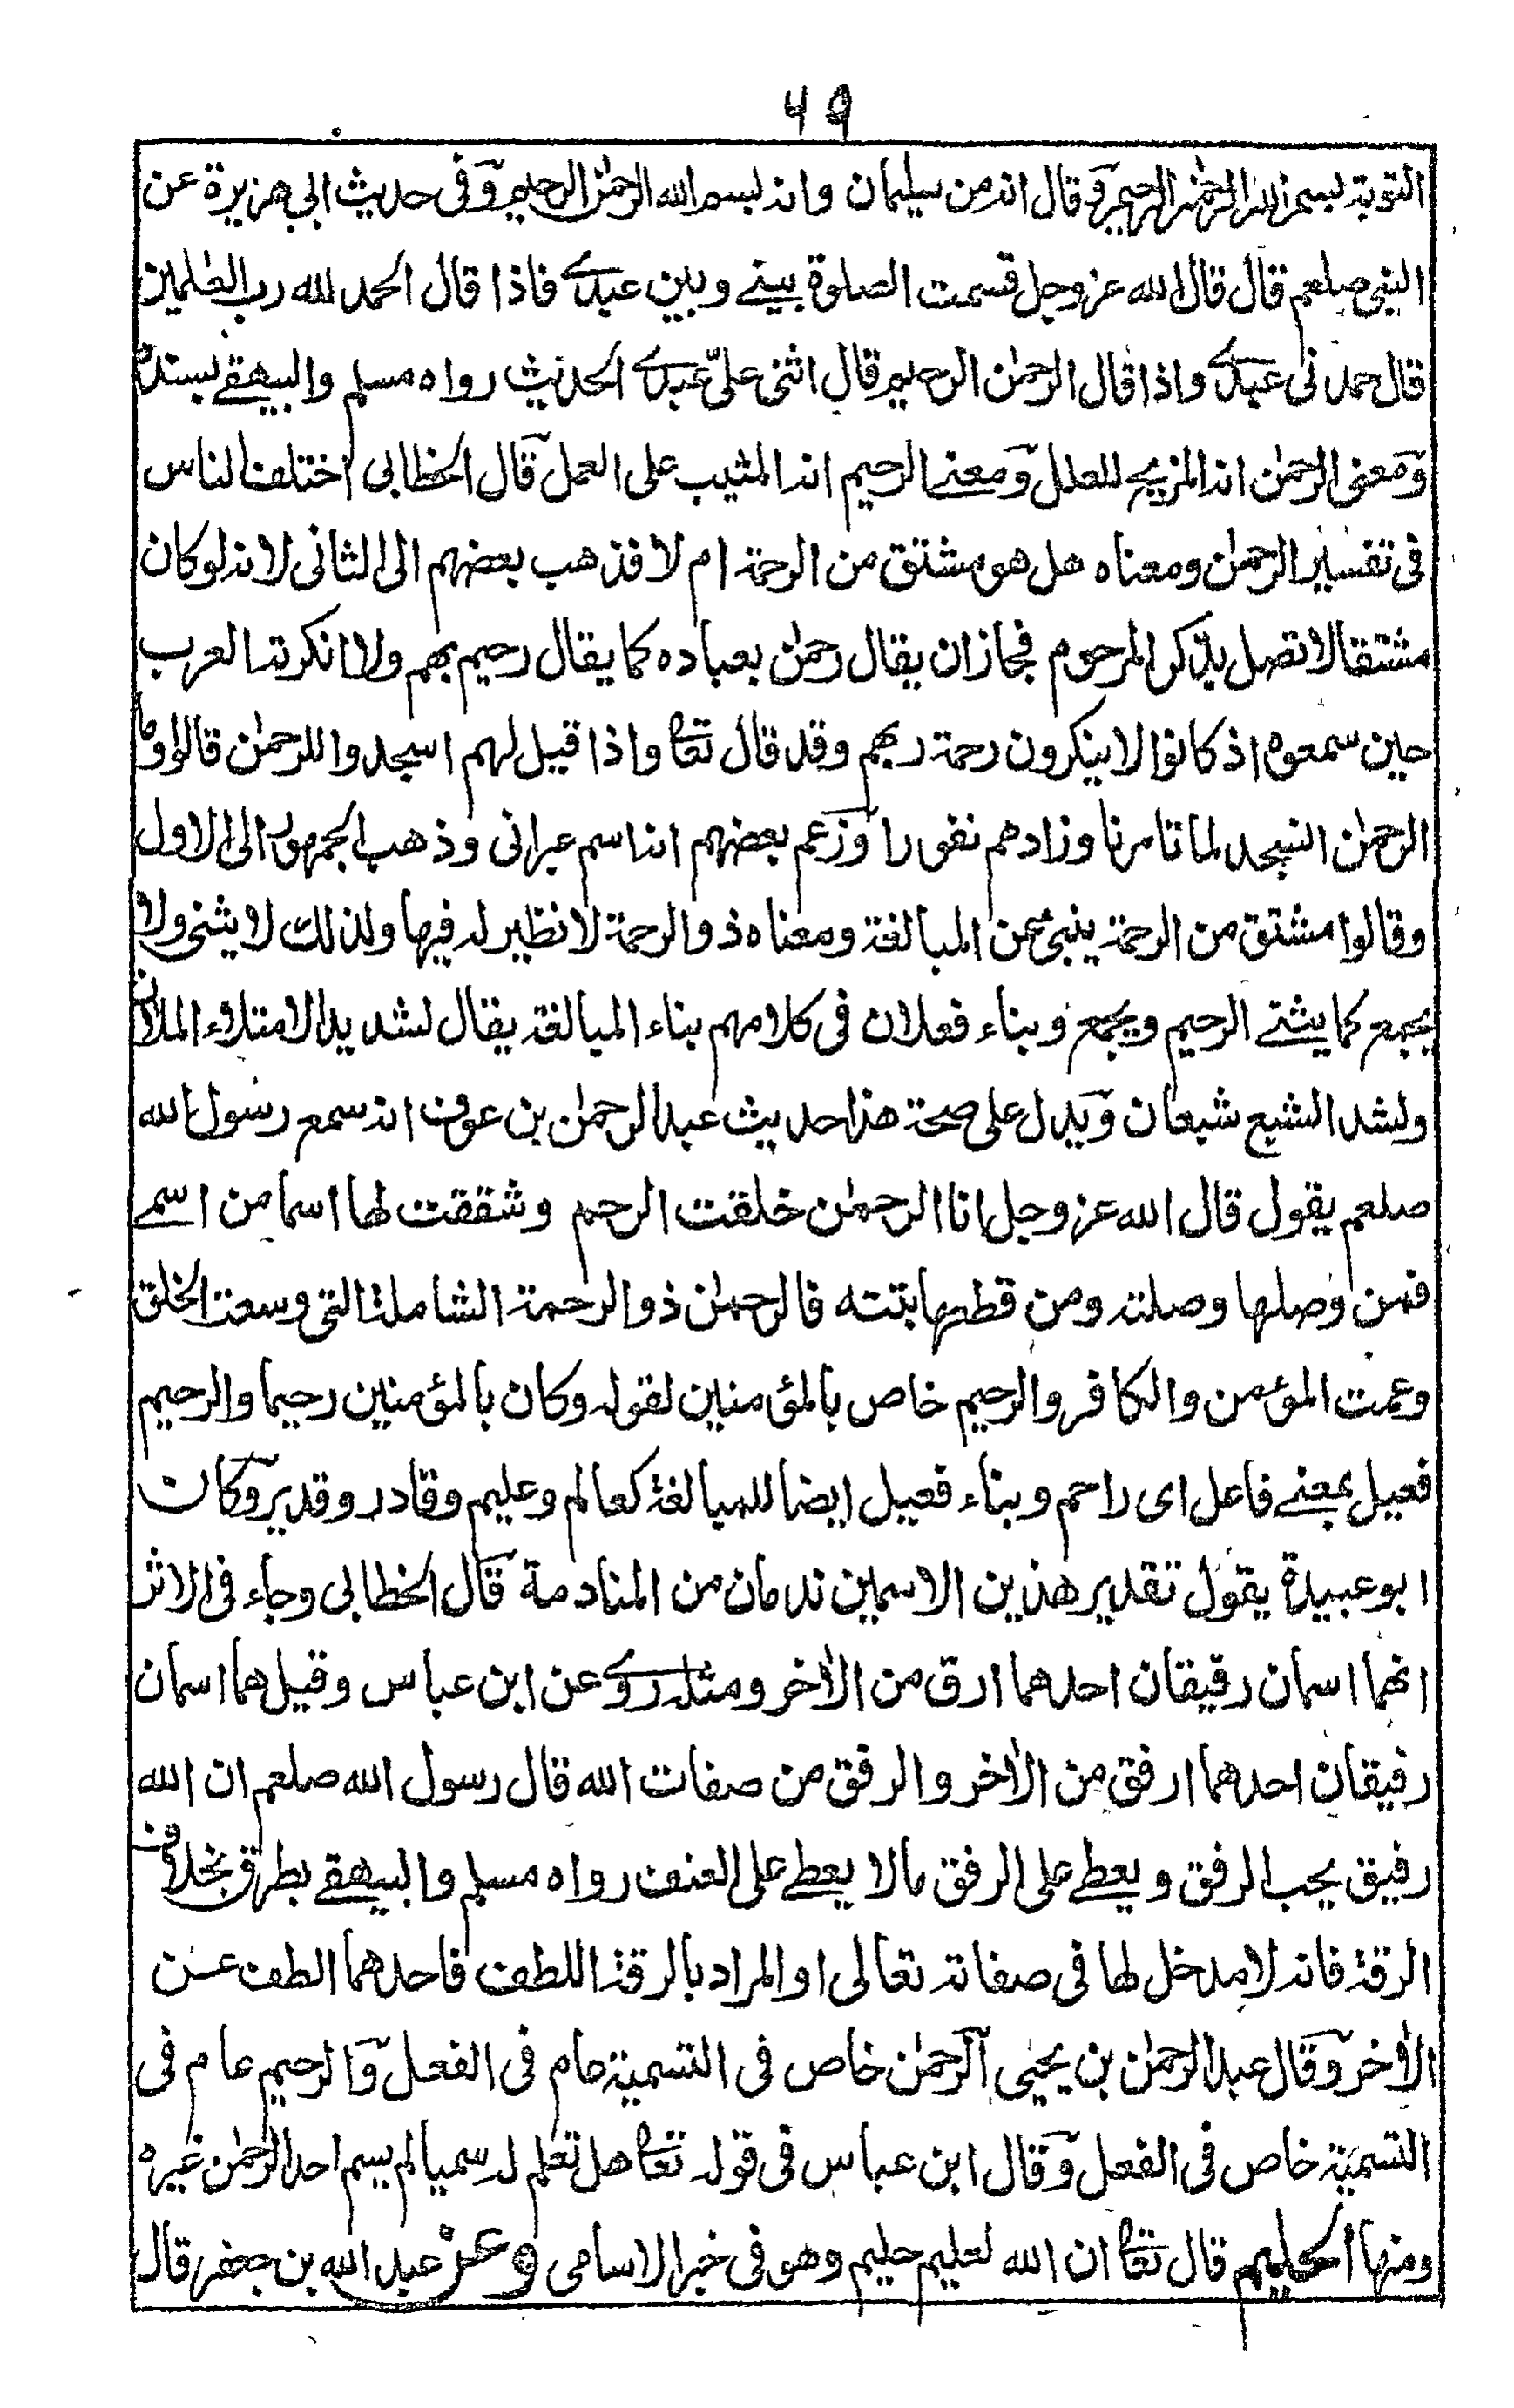 ۶۹
التوبة بسم الله الرحمٰن الرحيم وقال انه من سليمان وانه بسم الله الرحمٰن الرحيم وفى حديث ابى هريرة عن
النبى صلعم قال قال الله عز وجل قسمت الصلوة بينے وبين عبدے فاذا قال الحمد لله رب العٰلمين
قال حمدنى عبدے واذا قال الرحمٰن الرحيم قال اثنى علىّ عبدے الحديث رواه مسلم والبيهقے بسنده
ومعنى الرحمٰن انه المزيح للعلل ومعنے الرحيم انه المثيب على العمل قال الخطابى اختلف الناس
فى تفسير الرحمٰن ومعناه هل هو مشتق من الرحمة ام لا فذهب بعضهم الى الثانى لانه لو كان
مشتقا لاتصل بذكر المرحوم فجاز ان يقال رحمٰن بعباده كما يقال رحيم بهم ولما انكرته العرب
حين سمعوه اذ كانوا لا ينكرون رحمة ربهم وقد قال تعا واذا قيل لهم اسجدوا للرحمٰن قالوا وما
الرحمٰن انسجد لما تامرنا وزادهم نفورا وزعم بعضهم انه اسم عبرانى وذهب الجمهور الى الاول
وقالوا مشتق من الرحمة ينبئ عن المبالغة ومعناه ذو الرحمة لا نظير له فيها ولذلك لا يثنى ولا
يجمع كما يثنے الرحيم ويجمع وبناء فعلان فى كلامهم بناء المبالغة يقال لشديد الامتلاء الملان
ولشد الشبع شبعان ويدل على صحة هذا حديث عبد الرحمٰن بن عوف انه سمع رسول الله
صلعم يقول قال الله عز وجل انا الرحمٰن خلقت الرحم وشققت لها اسما من اسمے
فمن وصلها وصلته ومن قطعها بتته فالرحمٰن ذو الرحمة الشاملة التى وسعت الخلق
وعمت المؤمن والكافر والرحيم خاص بالمؤمنين لقوله وكان بالمؤمنين رحيما والرحيم
فعيل بمعنے فاعل اى راحم وبناء فعيل ايضا للمبالغة كعالم وعليم وقادر وقدير وكان
ابو عبيدة يقول تقدير هذين الاسمين ندمان من المنادمة قال الخطابى وجاء فى الاثر
انهما اسمان رقيقان احدهما ارق من الاٰخر ومثله روے عن ابن عباس وقيل هما اسمان
رفيقان احدهما ارفق من الاٰخر والرفق من صفات الله قال رسول الله صلعم ان الله
رفيق يحب الرفق ويعطے على الرفق مالا يعطے على العنف رواه مسلم والبيهقے بطرق بخلاف
الرقة فانه لا مدخل لها فى صفاته تعالى او المراد بالرقة اللطف فاحدهما الطف عن
الاٰخر وقال عبد الرحمٰن بن يحيٰى الرحمٰن خاص فى التسمية عام فى الفعل والرحيم عام فى
التسمية خاص فى الفعل وقال ابن عباس فى قوله تعا هل تعلم له سميا لم يسم احد الرحمٰن غيره
ومنها الحليم قال تعا ان الله لعليم حليم وهو فى خبر الاسامى وعن عبد الله بن جعفر قال